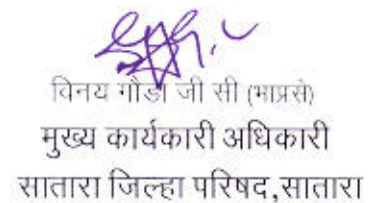 विनय गौडा जी सी (भाप्रसे)
मुख्य कार्यकारी अधिकारी
सातारा जिल्हा परिषद,सातारा